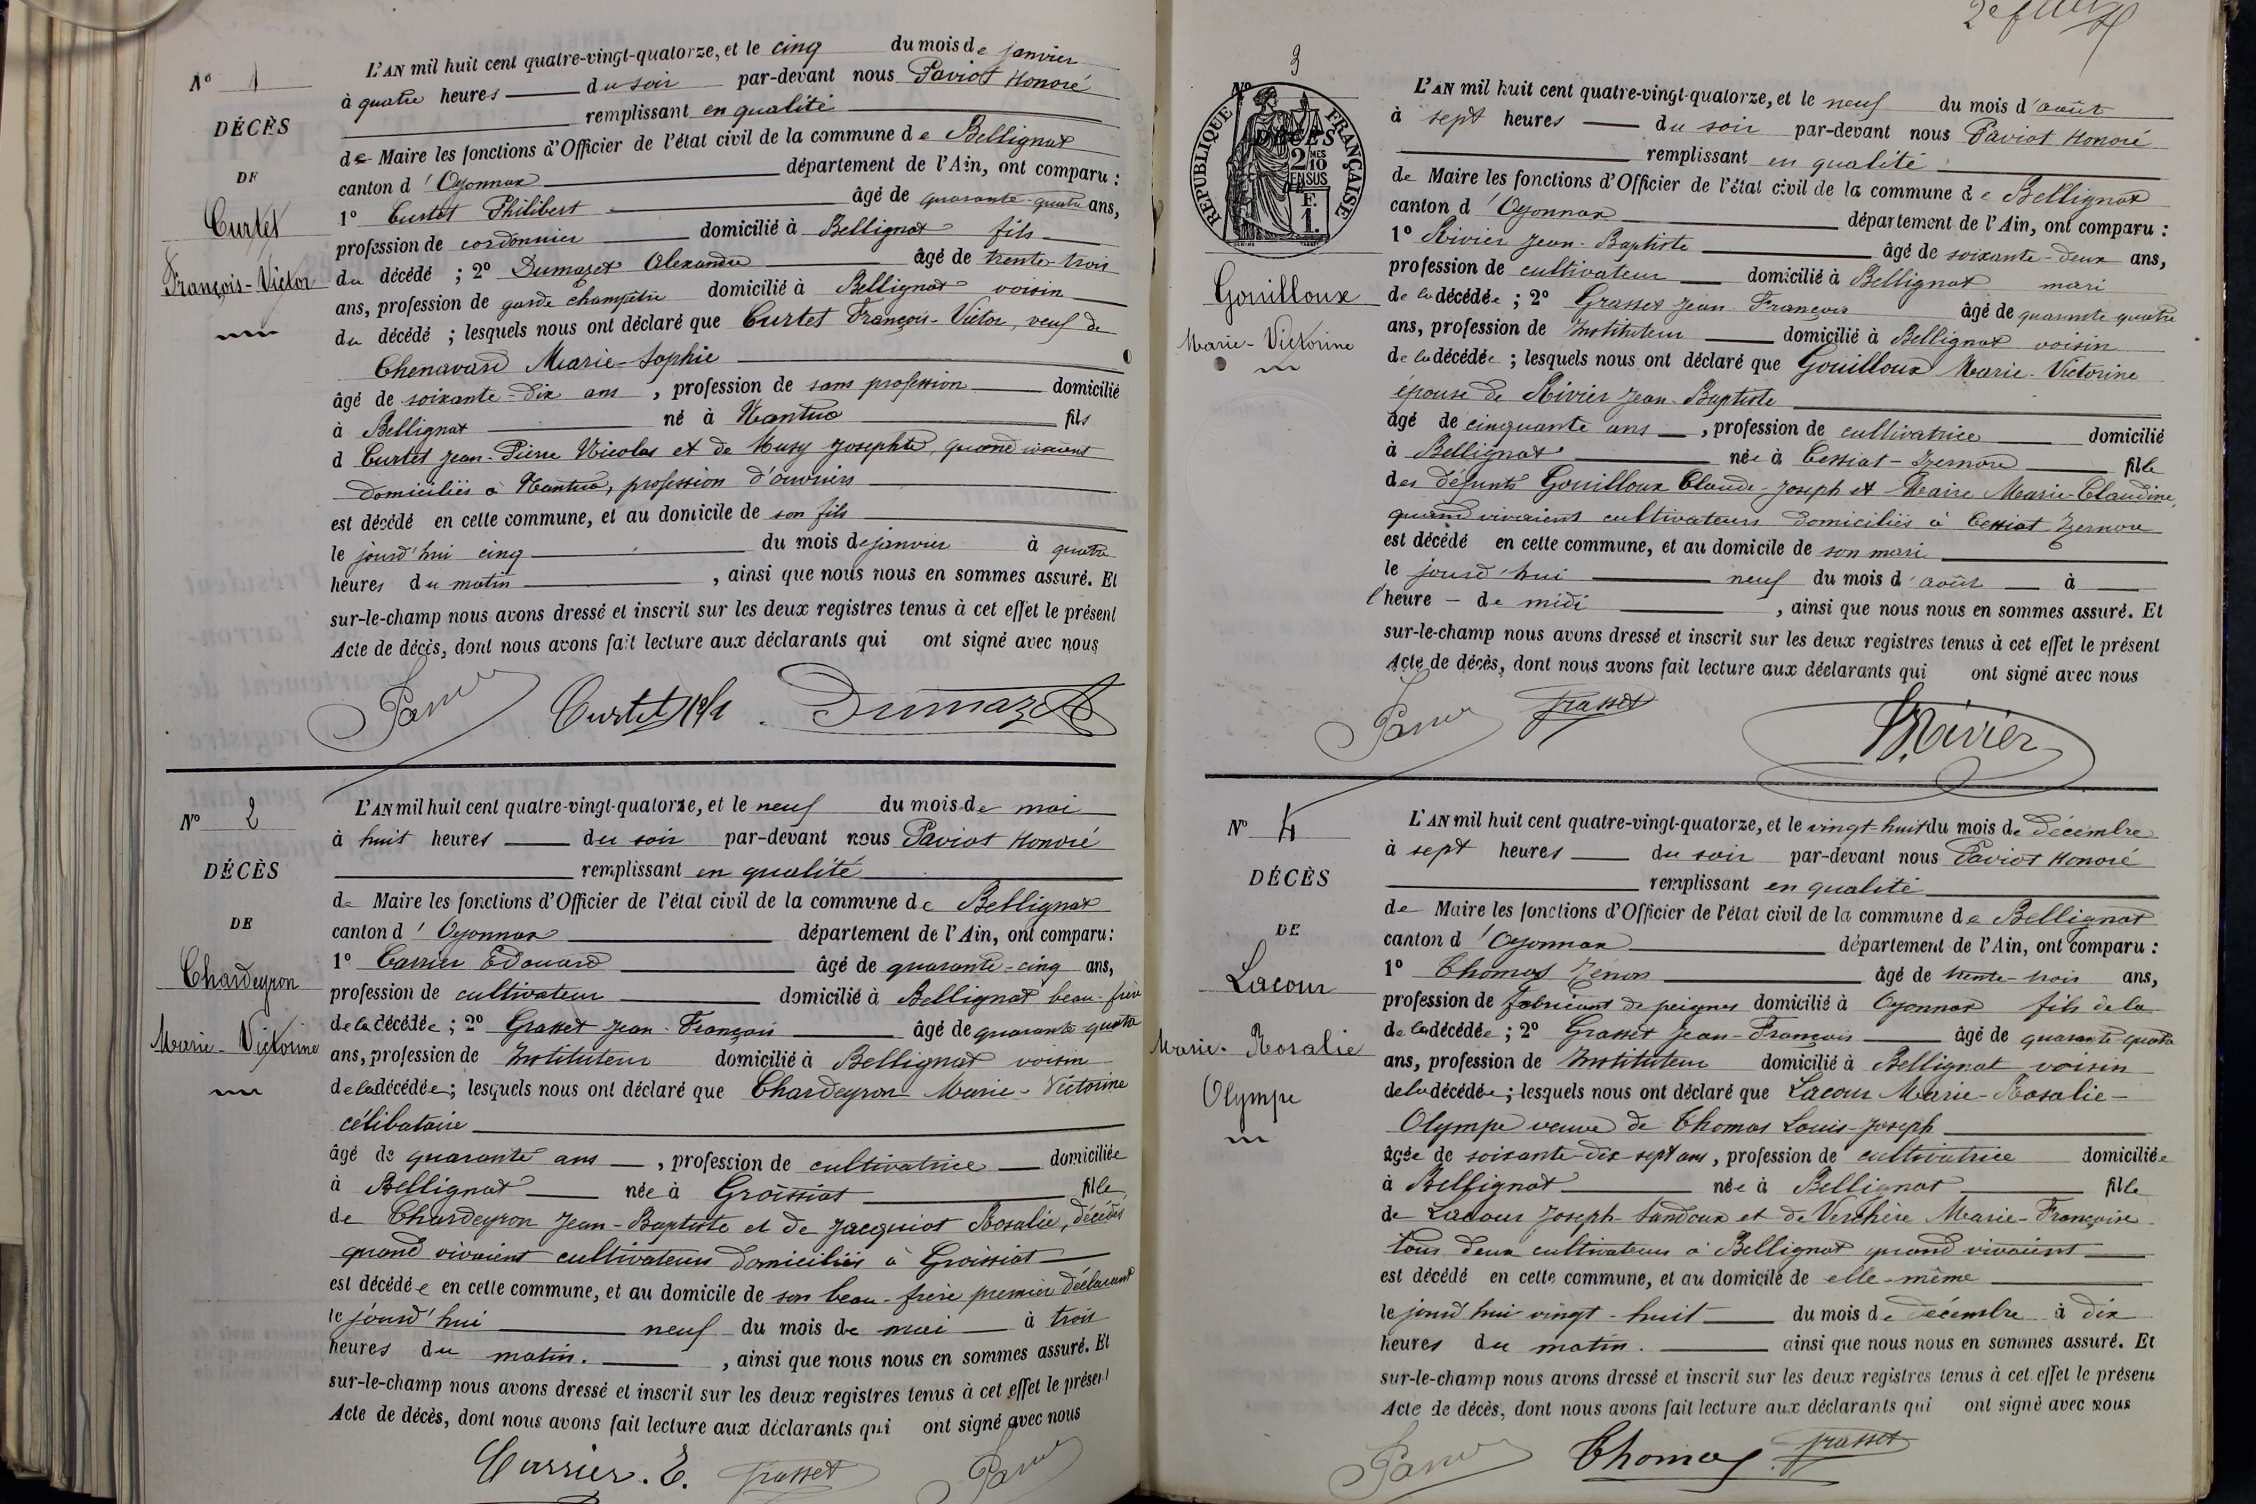 Nº 1
DÉCÈS
DE
Curtet
François-Victor
L'AN mil huit cent quatre-vingt-quatorze, et le cinq du mois de janvier
à quatre heures du soir par-devant nous Paviot Honoré
remplissant en qualité
de Maire les fonctions d'Officier de l'état civil de la commune de Bellignat
canton d'Oyonnax département de l'Ain, ont comparu :
1º Curtet Philibert âgé de quarante-quatre ans,
profession de cordonnier domicilié à Bellignat fils
du décédé ; 2º Dumazet Alexandre âgé de trente-trois
ans, profession de garde champêtre domicilié à Bellignat voisin
du décédé ; lesquels nous ont déclaré que Curtet François-Victor, veuf de
Chenavard Marie-Sophie
âgé de soixante-dix ans, profession de sans profession domicilié
à Bellignat né à Nantua fils
d Curtet Jean-Pierre Nicolas et de Musy Josephte, quand vivaient
domiciliés à Nantua, profession d'ouvriers
est décédé en cette commune, et au domicile de son fils
le jourd'hui cinq du mois de janvier à quatre
heures du matin, ainsi que nous nous en sommes assuré. Et
sur-le-champ nous avons dressé et inscrit sur les deux registres tenus à cet effet le présent
Acte de décès, dont nous avons fait lecture aux déclarants qui ont signé avec nous
Curtet Dumazet
Nº 2
DÉCÈS
DE
Chardeyron
Marie-Victorine
L'AN mil huit cent quatre-vingt-quatorze, et le neuf du mois de mai
à huit heures du soir par-devant nous Paviot Honoré
remplissant en qualité
de Maire les fonctions d'Officier de l'état civil de la commune de Bellignat
canton d'Oyonnax département de l'Ain, ont comparu :
1º Carrier Edouard âgé de quarante-cinq ans,
profession de cultivateur domicilié à Bellignat beau-frère
de la décédée ; 2º Grasset Jean-François âgé de quarante-quatre
ans, profession de Instituteur domicilié à Bellignat voisin
de la décédée ; lesquels nous ont déclaré que Chardeyron Marie-Victorine
célibataire
âgé de quarante ans, profession de cultivatrice domiciliée
à Bellignat née à Groissiat fille
de Chardeyron Jean-Baptiste et de Jacquiot Rosalie, décédés
quand vivaient cultivateurs domiciliés à Groissiat
est décédée en cette commune, et au domicile de son beau-frère premier déclarant
le jourd'hui neuf du mois de mai à trois
heures du matin. , ainsi que nous nous en sommes assuré. Et
sur-le-champ nous avons dressé et inscrit sur les deux registres tenus à cet effet le présent
Acte de décès, dont nous avons fait lecture aux déclarants qui ont signé avec nous
Carrier. E. Grasset
Nº 3
RÉPUBLIQUE FRANÇAISE
DÉCÈS
2 MES
10
EN SUS
F.
1.
Gouilloux
Marie-Victorine
L'AN mil huit cent quatre-vingt-quatorze, et le neuf du mois d'août
à sept heures du soir par-devant nous Paviot Honoré
remplissant en qualité
de Maire les fonctions d'Officier de l'état civil de la commune de Bellignat
canton d'Oyonnax département de l'Ain, ont comparu :
1º Rivier Jean-Baptiste âgé de soixante-deux ans,
profession de cultivateur domicilié à Bellignat mari
de la décédée ; 2º Grasset Jean François âgé de quarante quatre
ans, profession de Instituteur domicilié à Bellignat voisin
de la décédée ; lesquels nous ont déclaré que Gouilloux Marie-Victorine
épouse de Rivier Jean-Baptiste
âgé de cinquante ans, profession de cultivatrice domicilié
à Bellignat née à Cessiat-Izernore fille
des défunts Gouilloux Claude-Joseph et Maire Marie-Claudine,
quand vivaient cultivateurs domiciliés à Cessiat Izernore
est décédé en cette commune, et au domicile de son mari
le jourd'hui neuf du mois d'août à
l'heure de midi, ainsi que nous nous en sommes assuré. Et
sur-le-champ nous avons dressé et inscrit sur les deux registres tenus à cet effet le présent
Acte de décès, dont nous avons fait lecture aux déclarants qui ont signé avec nous
Grasset Rivier
Nº 4
DÉCÈS
DE
Lacour
Marie-Rosalie
Olympe
L'AN mil huit cent quatre-vingt-quatorze, et le vingt-huit du mois de décembre
à sept heures du soir par-devant nous Paviot Honoré
remplissant en qualité
de Maire les fonctions d'Officier de l'état civil de la commune de Bellignat
canton d'Oyonnax département de l'Ain, ont comparu :
1º Thomas Zénon âgé de trente-trois ans,
profession de fabricant de peignes domicilié à Oyonnax fils de la
de la décédée ; 2º Grasset Jean-François âgé de quarante-quatre
ans, profession de Instituteur domicilié à Bellignat voisin
de la décédée ; lesquels nous ont déclaré que Lacour Marie-Rosalie-
Olympe veuve de Thomas Louis-Joseph
âgée de soixante-dix-sept ans, profession de cultivatrice domiciliée
à Bellignat née à Bellignat fille
de Lacour Joseph-Sandoux et de Verchère Marie-Françoise
tous deux cultivateurs à Bellignat quand vivaient
est décédé en cette commune, et au domicile de elle-même
le jourd'hui vingt-huit du mois de décembre à dix
heures du matin. ainsi que nous nous en sommes assuré. Et
sur-le-champ nous avons dressé et inscrit sur les deux registres tenus à cet effet le présent
Acte de décès, dont nous avons fait lecture aux déclarants qui ont signé avec nous
Thomas Grasset